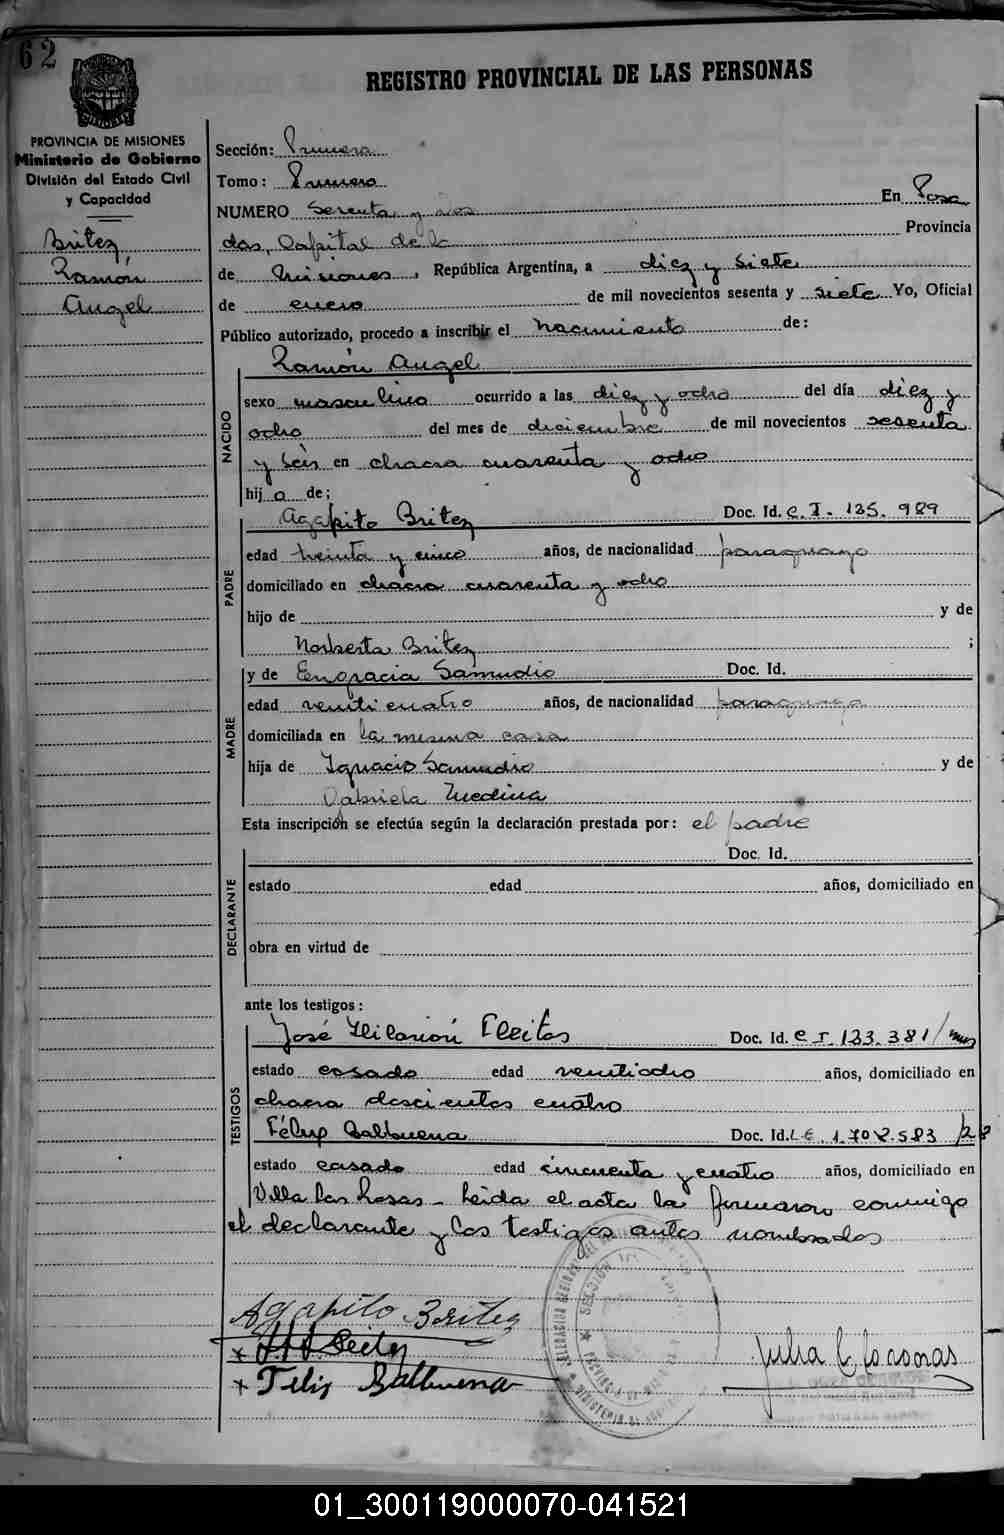 62
REGISTRO PROVINCIAL DE LAS PERSONAS
PROVINCIA DE MISIONES
Ministerio de Gobierno
División del Estado Civil
y Capacidad
Britez
Ramón
Angel
Sección: Primera
Tomo: Primero
NUMERO Sesenta y dos En Posa
das, Capital de la Provincia
de Misiones, República Argentina, a diez y siete
de enero de mil novecientos sesenta y siete Yo, Oficial
Público autorizado, procedo a inscribir el Nacimiento de:
Ramón Angel
NACIDO
sexo masculino ocurrido a las diez y ocho del día diez y
ocho del mes de diciembre de mil novecientos sesenta
y seis en chacra cuarenta y ocho
hij o de;
PADRE
Agapito Britez Doc. Id. C.I. 135.989
edad treinta y cinco años, de nacionalidad paraguayo
domiciliado en chacra cuarenta y ocho
hijo de y de
Norberta Britez ;
MADRE
y de Engracia Samudio Doc. Id.
edad venticuatro años, de nacionalidad paraguaya
domiciliada en la misma casa
hija de Ignacio Samudio y de
Gabriela Medina
Esta inscripción se efectúa según la declaración prestada por: el padre
DECLARANTE
Doc. Id.
estado edad años, domiciliado en
obra en virtud de
ante los testigos:
TESTIGOS
José Hilarión Fleitas Doc. Id. C I. 133.381/mns
estado casado edad ventiocho años, domiciliado en
chacra doscientos cuatro
Félix Balbuena Doc. Id. LE. 1.702.583
estado casado edad cincuenta y cuatro años, domiciliado en
Villa las Rosas - Leida el acta la firmaron conmigo
el declarante y los testigos antes nombrados
Agapito Britez
Felix Balbuena
Julia C
01_300119000070-041521